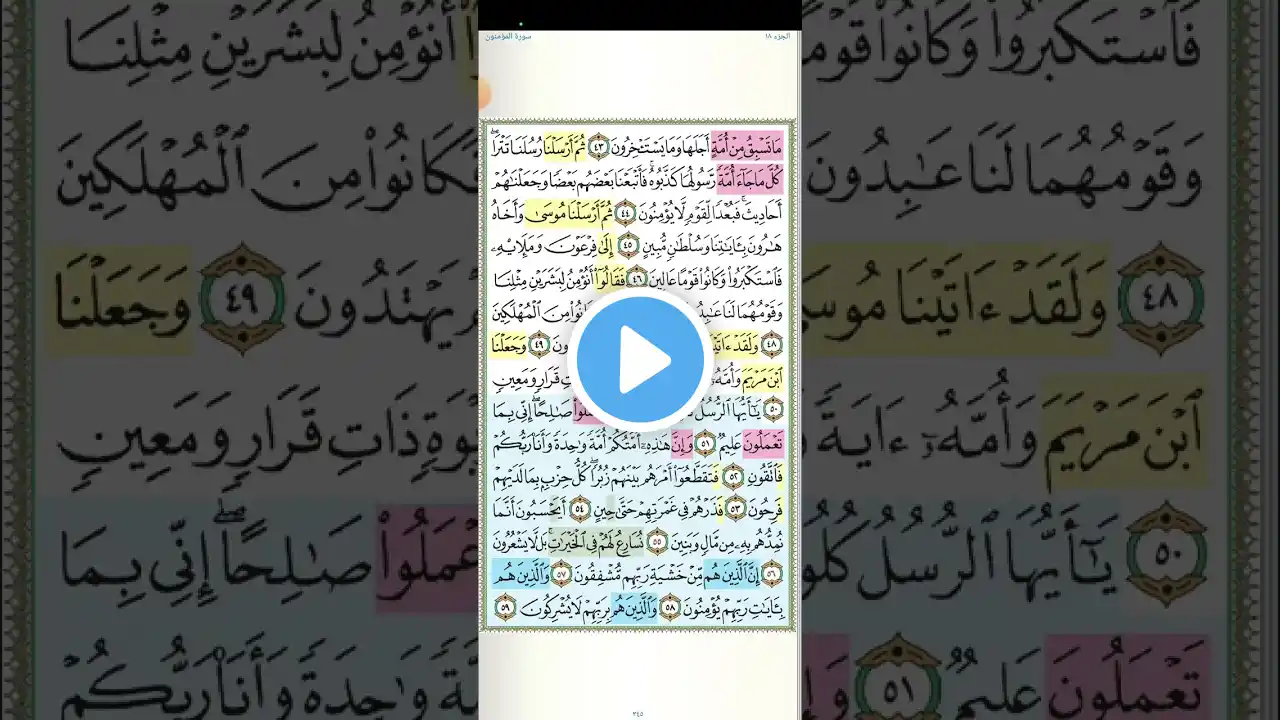 الجزء ١٨
سورة المؤمنون
مَا تَسۡبِقُ مِنۡ أُمَّةٍ أَجَلَهَا وَمَا يَسۡتَـٔۡخِرُونَ ٤٣ ثُمَّ أَرۡسَلۡنَا رُسُلَنَا تَتۡرَاۖ
كُلَّ مَا جَآءَ أُمَّةٗ رَّسُولُهَا كَذَّبُوهُۖ فَأَتۡبَعۡنَا بَعۡضَهُم بَعۡضٗا وَجَعَلۡنَٰهُمۡ
أَحَادِيثَۚ فَبُعۡدٗا لِّقَوۡمٖ لَّا يُؤۡمِنُونَ ٤٤ ثُمَّ أَرۡسَلۡنَا مُوسَىٰ وَأَخَاهُ
هَٰرُونَ بِـَٔايَٰتِنَا وَسُلۡطَٰنٖ مُّبِينٍ ٤٥ إِلَىٰ فِرۡعَوۡنَ وَمَلَإِيْهِۦ
فَٱسۡتَكۡبَرُواْ وَكَانُواْ قَوۡمًا عَالِينَ ٤٦ فَقَالُوٓاْ أَنُؤۡمِنُ لِبَشَرَيۡنِ مِثۡلِنَا
وَقَوۡمُهُمَا لَنَا عَٰبِدُونَ مِنَ ٱلۡمُهۡلَكِينَ
٤٨ وَلَقَدۡ ءَاتَيۡنَا ٤٩ وَجَعَلۡنَا
ٱبۡنَ مَرۡيَمَ وَأُمَّهُۥٓ قَرَارٖ وَمَعِينٖ
٥٠ يَٰٓأَيُّهَا ٱلرُّسُلُ صَٰلِحًاۖ إِنِّي بِمَا
تَعۡمَلُونَ عَلِيمٞ ٥١ وَإِنَّ هَٰذِهِۦٓ أُمَّتُكُمۡ أُمَّةٗ وَٰحِدَةٗ وَأَنَا۠ رَبُّكُمۡ
فَٱتَّقُونِ ٥٢ فَتَقَطَّعُوٓاْ أَمۡرَهُم بَيۡنَهُمۡ زُبُرٗاۖ كُلُّ حِزۡبِۭ بِمَا لَدَيۡهِمۡ
فَرِحُونَ ٥٣ فَذَرۡهُمۡ فِي غَمۡرَتِهِمۡ حَتَّىٰ حِينٍ ٥٤ أَيَحۡسَبُونَ أَنَّمَا
نُمِدُّهُم بِهِۦ مِن مَّالٖ وَبَنِينَ ٥٥ نُسَارِعُ لَهُمۡ فِي ٱلۡخَيۡرَٰتِۚ بَل لَّا يَشۡعُرُونَ
٥٦ إِنَّ ٱلَّذِينَ هُم مِّنۡ خَشۡيَةِ رَبِّهِم مُّشۡفِقُونَ ٥٧ وَٱلَّذِينَ هُم
بِـَٔايَٰتِ رَبِّهِمۡ يُؤۡمِنُونَ ٥٨ وَٱلَّذِينَ هُم بِرَبِّهِمۡ لَا يُشۡرِكُونَ ٥٩
٣٤٥